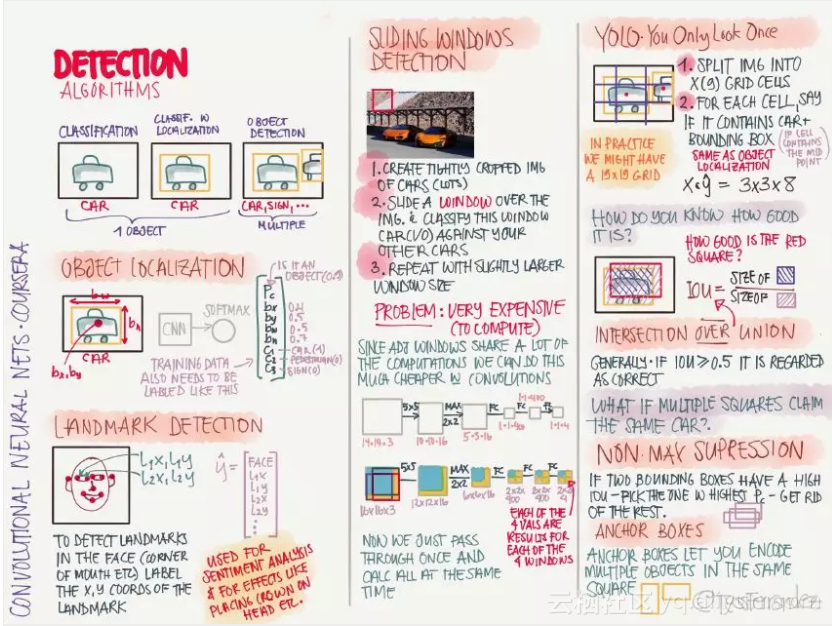 CONVOLUTIONAL NEURAL NETS · COURSERA
DETECTION
ALGORITHMS
CLASSIFICATION
CLASSIF. W
LOCALIZATION
OBJECT
DETECTION
CAR
CAR
CAR, SIGN, ...
1 OBJECT
MULTIPLE
OBJECT LOCALIZATION
IS IT AN
OBJECT (0,1)
bw
bh
CAR
bx,by
CNN
SOFTMAX
Pc
bx
by 0.5
bh 0.5
C1 CAR (1)
C2 PEDESTRIAN (0)
C3 SIGN (0)
TRAINING DATA
ALSO NEEDS TO BE
LABELED LIKE THIS
LANDMARK DETECTION
l1x, l1y
l2x, l2y
ŷ =
FACE
l1x
l1y
l2x
l2y
TO DETECT LANDMARKS
IN THE FACE (CORNER
OF MOUTH ETC) LABEL
THE X,Y COORDS OF THE
LANDMARK
USED FOR
SENTIMENT ANALYSIS
& FOR EFFECTS LIKE
PLACING CROWN ON
HEAD ETC.
SLIDING WINDOWS
DETECTION
1. CREATE TIGHTLY CROPPED IMG
OF CARS (LOTS)
2. SLIDE A WINDOW OVER THE
IMG. & CLASSIFY THIS WINDOW
CAR (1/0) AGAINST YOUR
OTHER CARS
3. REPEAT WITH SLIGHTLY LARGER
WINDOW SIZE
PROBLEM: VERY EXPENSIVE
(TO COMPUTE)
SINCE ADJ WINDOWS SHARE A LOT OF
THE COMPUTATIONS WE CAN DO THIS
MUCH CHEAPER W CONVOLUTIONS
5×5 MAX FC FC
2×2
1·1·400
14·14·3 10·10·16 5·5·16 1·1·400 1·1·4
5×5 MAX FC FC FC
2×2
16×16×3 12×12×16 6×6×16
EACH OF THE
4 VALS ARE
RESULTS FOR
EACH OF THE
4 WINDOWS
NOW WE JUST PASS
THROUGH ONCE AND
CALC ALL AT THE SAME
TIME
YOLO · You Only Look Once
1. SPLIT IMG INTO
X(9) GRID CELLS
2. FOR EACH CELL, SAY
IF IT CONTAINS CAR +
BOUNDING BOX
(IF CELL
CONTAINS
THE MID
POINT)
SAME AS OBJECT
LOCALIZATION
IN PRACTICE
WE MIGHT HAVE
A 19×19 GRID
X&ŷ = 3×3×8
HOW DO YOU KNOW HOW GOOD
IT IS?
HOW GOOD IS THE RED
SQUARE?
IOU = SIZE OF
SIZE OF
INTERSECTION OVER UNION
GENERALLY · IF IOU ≥ 0.5 IT IS REGARDED
AS CORRECT
WHAT IF MULTIPLE SQUARES CLAIM
THE SAME CAR?
NON·MAX SUPRESSION
IF TWO BOUNDING BOXES HAVE A HIGH
IOU – PICK THE ONE W HIGHEST Pc – GET RID
OF THE REST.
ANCHOR BOXES
ANCHOR BOXES LET YOU ENCODE
MULTIPLE OBJECTS IN THE SAME
SQUARE
@TessFerrandez
云栖社区